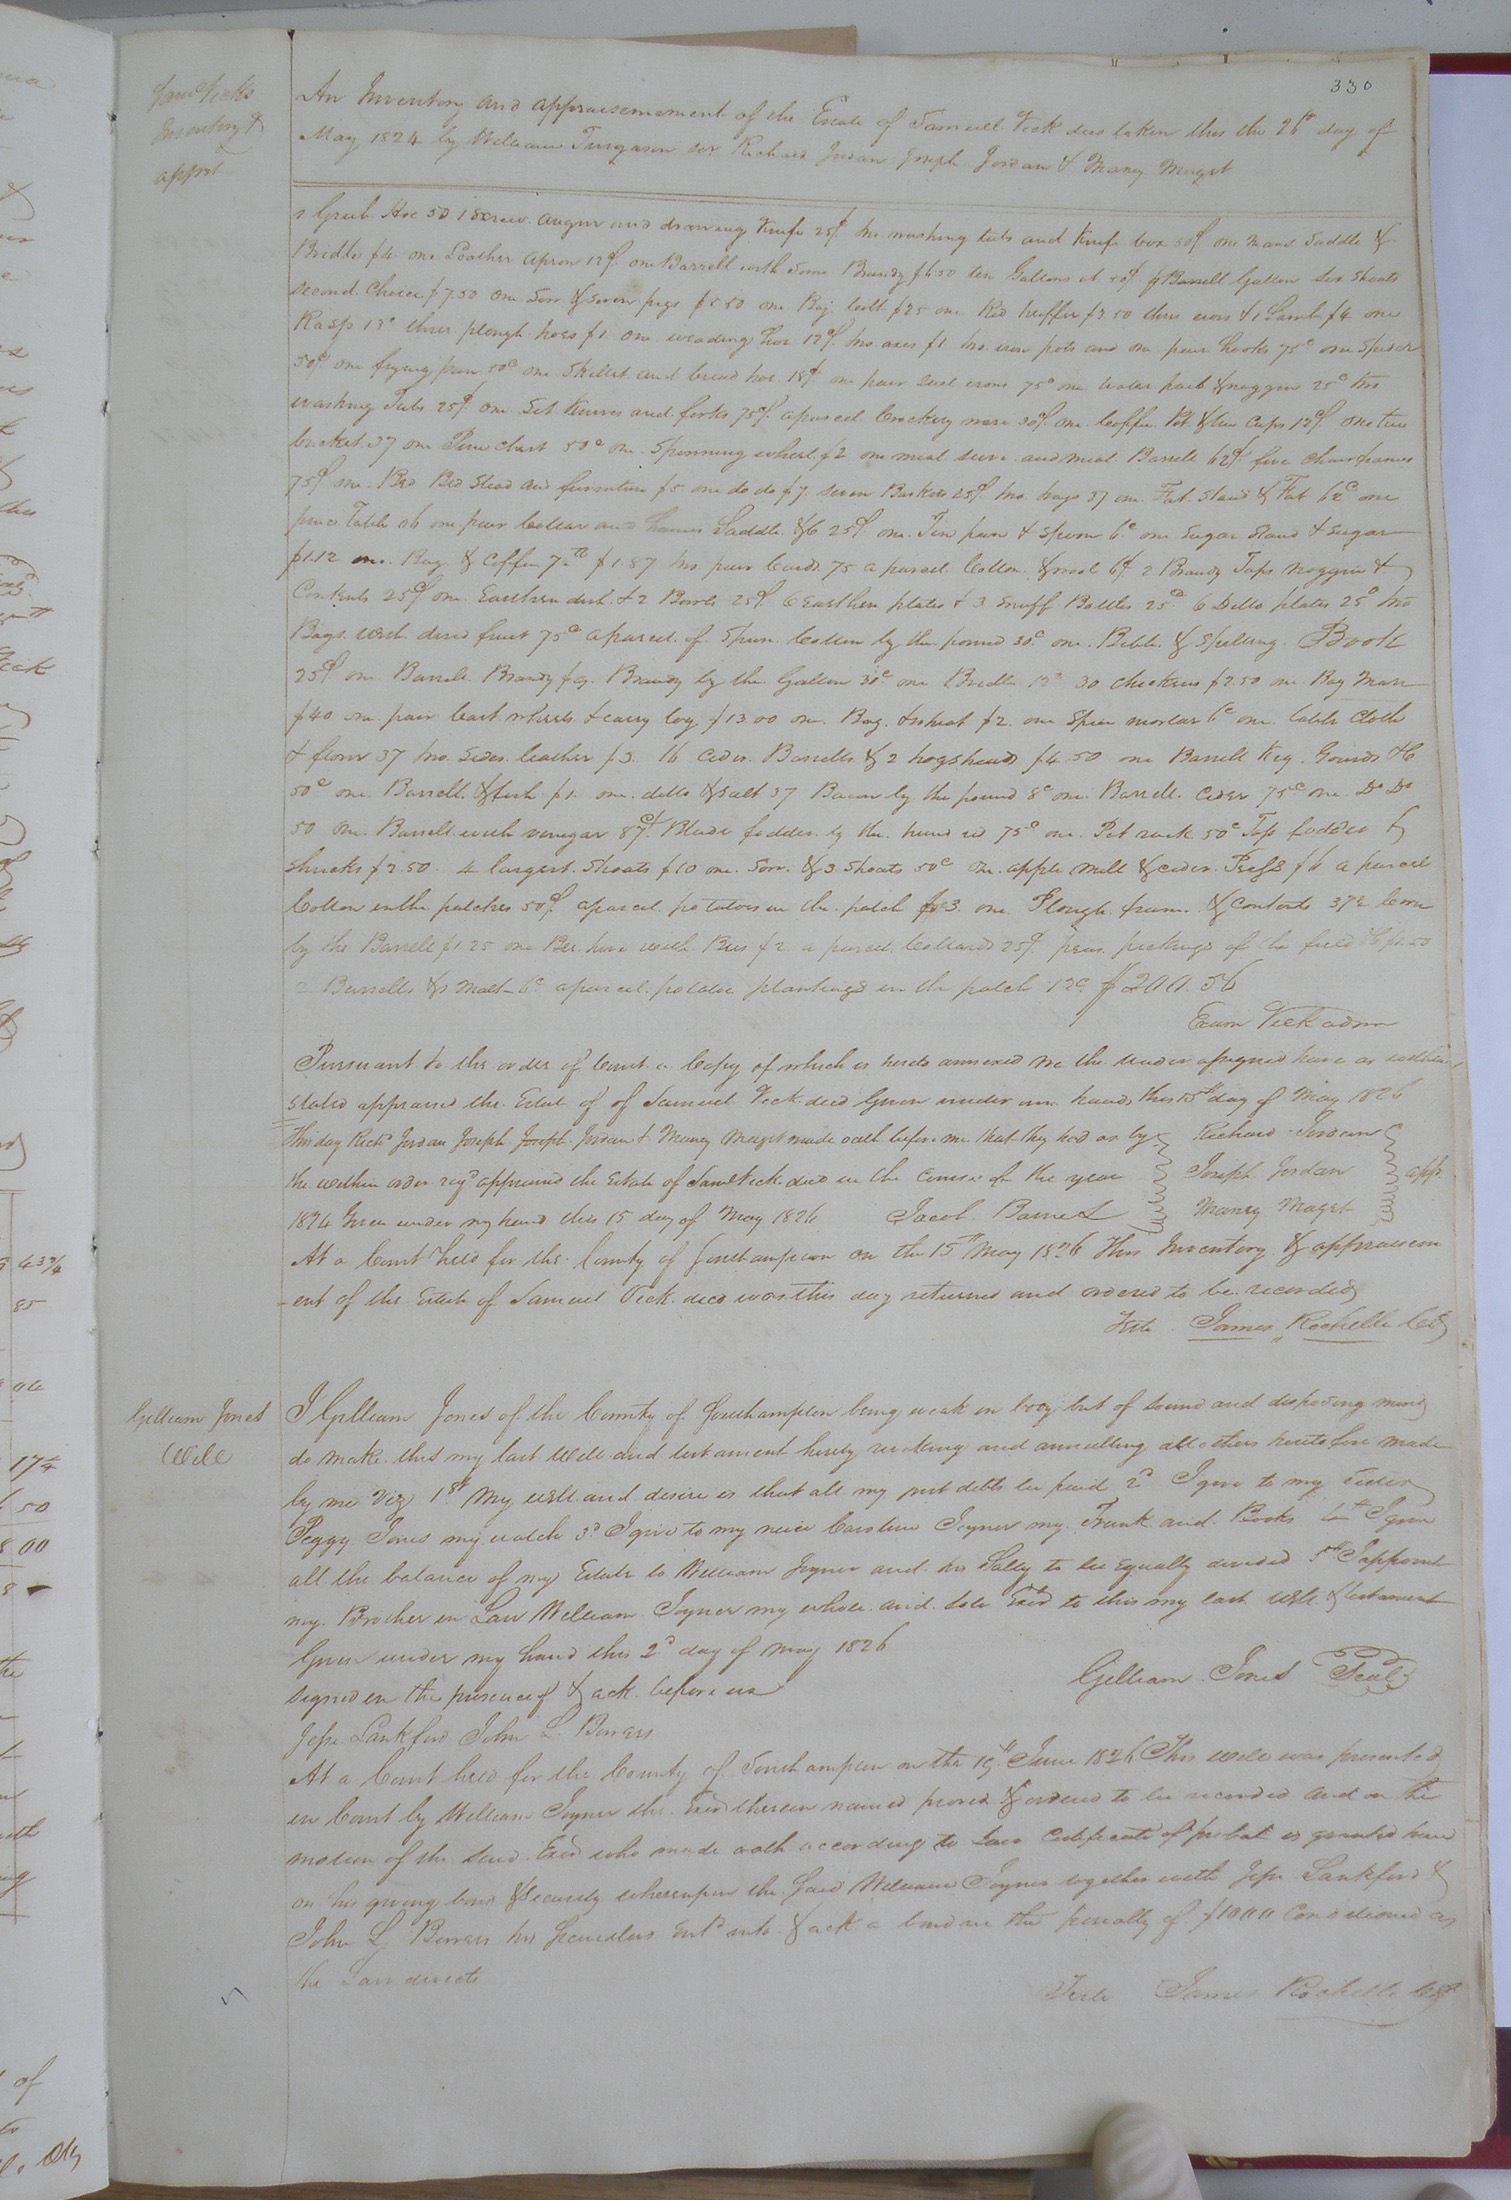 330
Saml Vicks
Inventory &
appmt
An Inventory and appraisement of the Estate of Samuel Vick decd taken this the 26th day of
May 1824 by William Turgason Richard Jordan Joseph Jordan & Manry Magst
1 Grub Hoe 50 1 Screw auger and drawing knife 25¢ two washing tubs and knife box 50¢ one mans Saddle &
Bridle $4 one Leather apron 12¢ one Barrell with Some Brandy $6.50 ten Gallons at 50¢ Barrell Gallon Six Shoats
second Choice $7.50 one Sow & Seven pigs $5.50 one Bay Colt $25 one Red heiffer $3.50 three ews & 1 Lamb $4 one
Rasp 13c three plough hoes $1 one weading hoe 12¢ two axes $1 two iron pots and one pair hooks 75c one Spider
50¢ one frying pan 50c one Skillet and bread hoe 18¢ one pair Sad irons 75c one water pail & noggin 25c two
washing Tubs 25¢ one Set Knives and forks 75¢ a parcel Crockery ware 30¢ one Coffee Pot & two Cups 12¢ one two
bucket 37 one Pine Chest 50c one Spinning wheel $2 one meal Sieve and meal Barrell 62¢ five Chairframes
75¢ one Bed Bed Stead and furniture $5 one do do $7 seven Baskets 25¢ two bags 37 one Fat Stand & Fat 62c one
pine Table 06 one pair Collar and hames Saddle &c 25¢ one Tin pan & Spoon 6c one Sugar Stand & Sugar
$1.12 one Bag & Coffee 7lb $1.87 two pair Cards 75 a parcel Cotton & wool 6¢ 2 Brandy Taps noggin &
Contents 25¢ one Earthen dish & 2 Bowls 25¢ 6 Earthen plates & 3 Snuff Bottles 25c 6 Ditto plates 25c two
Bags with dried fruit 75c a parcel of Spun Cotton by the pound 30c one Bible & Spelling Book
25¢ one Barrell Brandy $9 Brandy by the Gallon 30c one Bridle 12c 30 Chickens $2.50 one Bay Mare
$40 one pair Cart wheels & carry log $13 00 one Bag & wheat $2 one Spice mortar 6c one table Cloth
& flour 37 two Sides leather $3 16 Cider Barrells & 2 hogsheads $4.50 one Barrell Keg Gourds &c
50c one Barrell & fish $1 one ditto & Salt 37 Bacon by the pound 8c one Barrell Cider 75c one Do Do
50 one Barrell with vinegar 87¢ Blade fodder by the hundred 75c one Pot rack 50c Top fodder &
Shucks $2.50 4 largest Shoats $10 one Sow & 3 Shoats 50c one apple Mill & Cider Press $6 a parcel
Cotton in the patches 50¢ a parcel potatoes in the patch $3 one Plough frame & Contents 37½ Corn
by the Barrell $1.25 one Bee hive with Bees $2 a parcel Collards 25¢ peas pickings of the field &c $1.50
2 Barrells & 1 Mat 6c a parcel potatoe plantings in the patch 12c $200.56
Exum Vick admr
Pursuant to the order of Court a Copy of which is hereto annexed we the under assigned have as within
stated appraised the Estate of of Samuel Vick decd Given under our hands this 15th day of May 1826
This day Richd Jordan Joseph Joseph Jordan & Manry Magst made oath before me that they had as by
the within order reqd appraised the Estate of Saml Vick decd in the Course of the year
1824 Given under my hand this 15 day of May 1826 Jacob Barnes
Richard Jordan
Joseph Jordan appr
Manry Magst
At a Court held for the County of Southampton on the 15th May 1826 This Inventory & appraisem
ent of the Estate of Samuel Vick decd was this day returned and ordered to be recorded
Teste James Rochelle Clk
Gilliam Jones
Will
I Gilliam Jones of the County of Southampton being weak in body but of sound and disposing mind
do make this my last Will and testament hereby revoking and annulling all others heretofore made
by me Viz 1st My will and desire is that all my just debts be paid 2d I give to my Sister
Peggy Jones my watch 3d I give to my neice Caroline Joyner my Trunk and Books 4th I give
all the balance of my Estate to William Joyner and his Sally to be Equally devided 5th I appoint
my Brother in Law William Joyner my whole and Sole Exor to this my last Will & testament
Given under my hand this 2d day of May 1826
Signed in the presence of & ack before us
Gilliam Jones Seal
Jesse Lankford John L. Bowers
At a Court held for the County of Southampton on the 19th June 1826 This Will was presented
in Court by William Joyner the Exor therein named proved & ordered to be recorded and on the
motion of the Said Exor who made oath according to Law Certificate of probat is granted him
on his giving bond & Security whereupon the Said William Joyner together with Jesse Lankford &
John L Bowers his Securities Entd into & ack a bond in the penalty of $1000 Conditioned as
the Law directs
Teste James Rochelle Clk